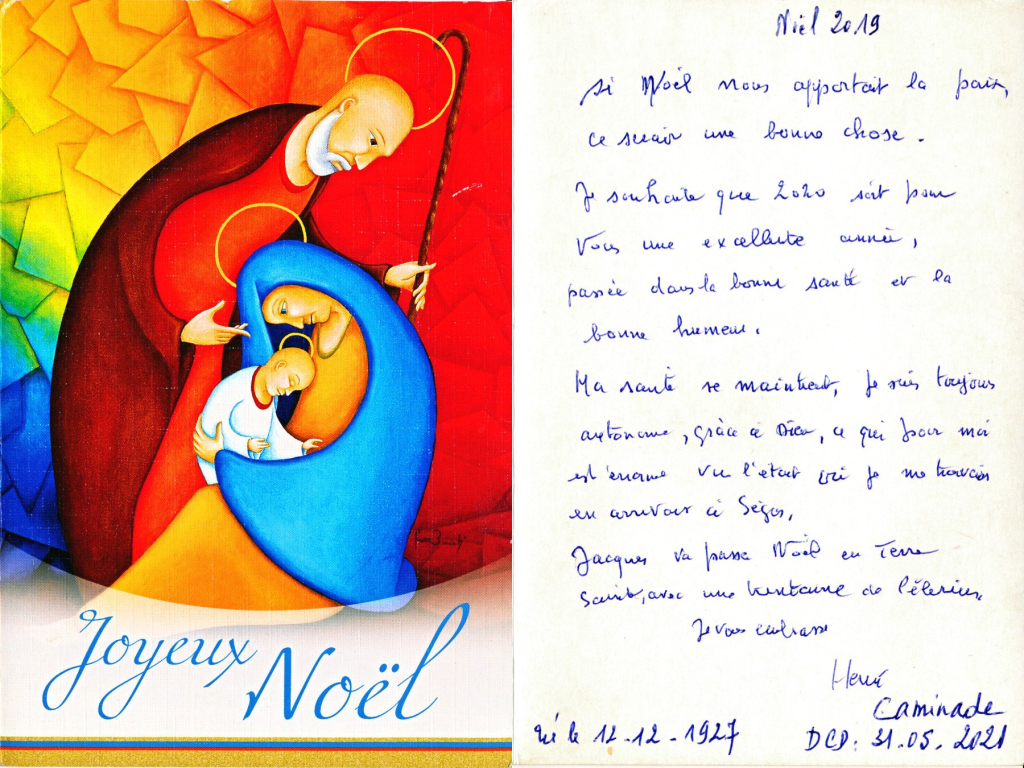 Joyeux
Noël
Noël 2019
Si Noël nous apportait la paix,
ce serait une bonne chose.
Je souhaite que 2020 soit pour
Vous une excellente année,
passée dans la bonne santé et la
bonne humeur.
Ma santé se maintient, je suis toujours
autonome, grâce à Dieu, ce qui pour moi
est énorme vu l'état où je me trouvais
en arrivant à Ségos,
Jacques va passer Noël en Terre
Sainte, avec une trentaine de Pélerins.
Je vous embrasse
Hervé
Caminade
né le 12-12-1927
DCD: 31.05.2021